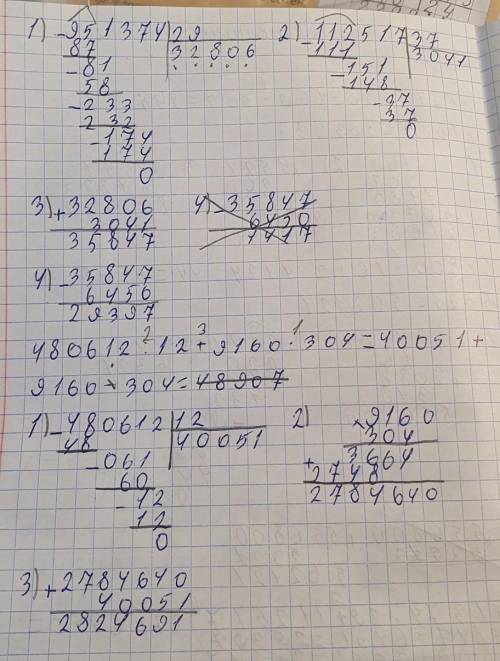 1) -951374 | 29
87 32806
-81
58
-233
232
-174
174
0
2) -112517 | 37
111 3041
-151
148
-37
37
0
3) +32806
3041
35847
4) -35847
6420
1417
4) -35847
6450
29397
480612 : 12 + 9160 · 304 = 40051 +
2 3 1
9160 · 304 = 48907
1) -480612 | 12
48 40051
-061
60
-12
12
0
2) ×9160
304
+3664
2748
2784640
3) +2784640
40051
2824691